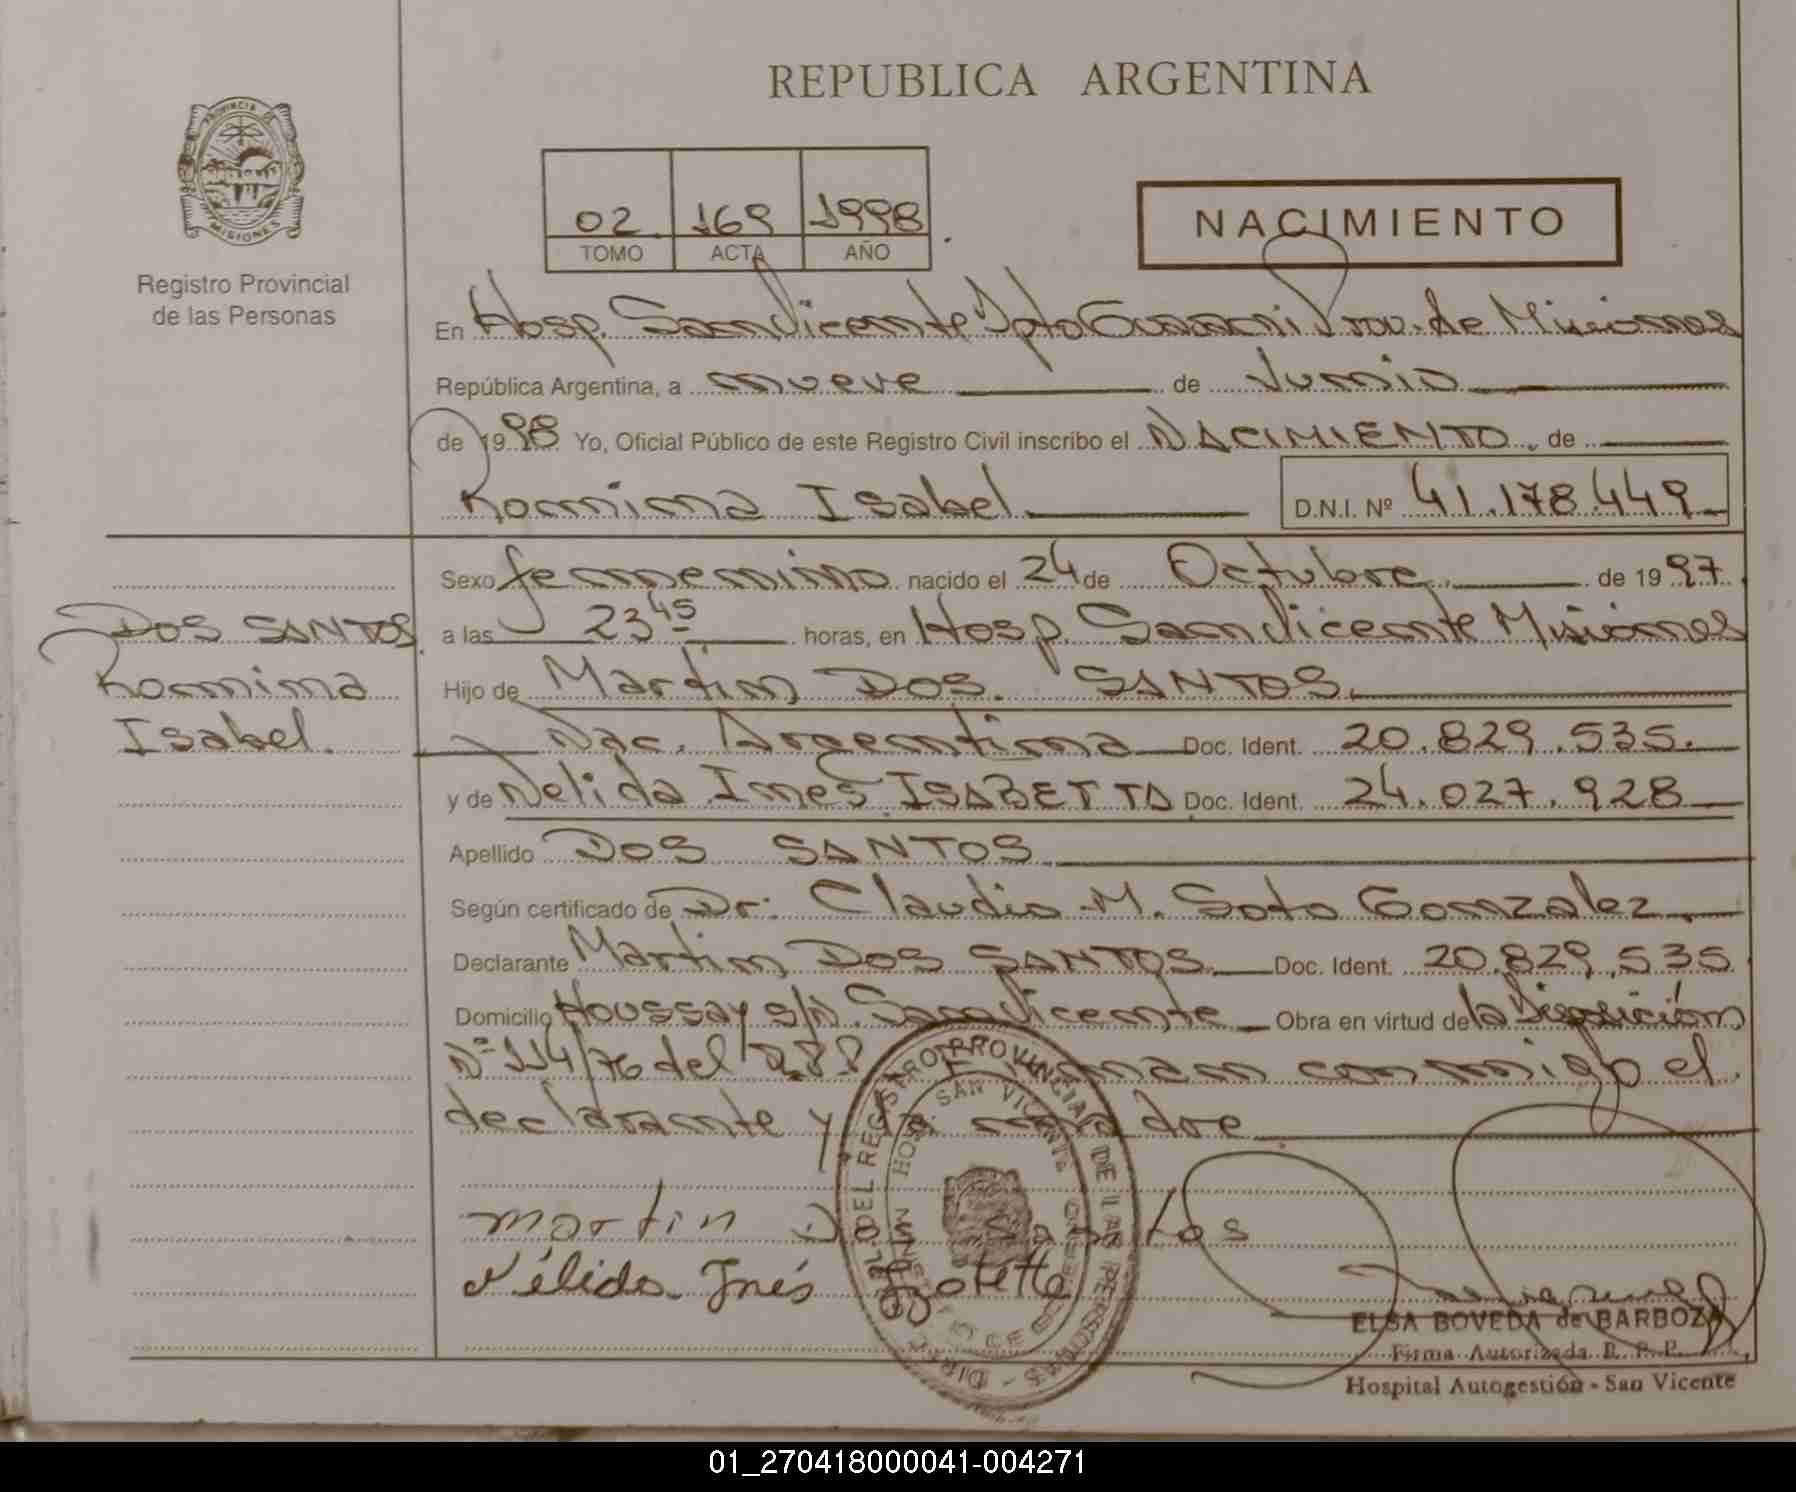 REPUBLICA ARGENTINA
PROVINCIA DE
MISIONES
Registro Provincial
de las Personas
02 169 1998
TOMO ACTA AÑO
NACIMIENTO
En Hosp. San Vicente Dpto Guarani Prov. de Misiones
República Argentina, a nueve de Junio
de 1998 Yo, Oficial Público de este Registro Civil inscribo el NACIMIENTO, de
Romina Isabel D.N.I. Nº 41.178.449
Sexo femenino nacido el 24 de Octubre de 1997
a las 23 45 horas, en Hosp. San Vicente Misiones
Hijo de Martin DOS SANTOS
Nac. Argentina Doc. Ident. 20.829.535.
y de Nelida Ines ISABETTA Doc. Ident. 24.027.928
Apellido DOS SANTOS
Según certificado de Dr. Claudio M. Soto Gonzalez
Declarante Martin DOS SANTOS Doc. Ident. 20.829.535
Domicilio Houssay s/n. San Vicente Obra en virtud de la Disposición
Nº 114/76 del conmigo el
declarante y la madre
DOS SANTOS
Romina
Isabel.
martin Dos Santos
Nélida Inés
DIR. GRAL. DEL REGISTRO PROVINCIAL DE LAS PERSONAS
HOSP. SAN VICENTE
ELSA BOVEDA de BARBOZA
Firma Autorizada R. P. P.
Hospital Autogestión - San Vicente
01_270418000041-004271